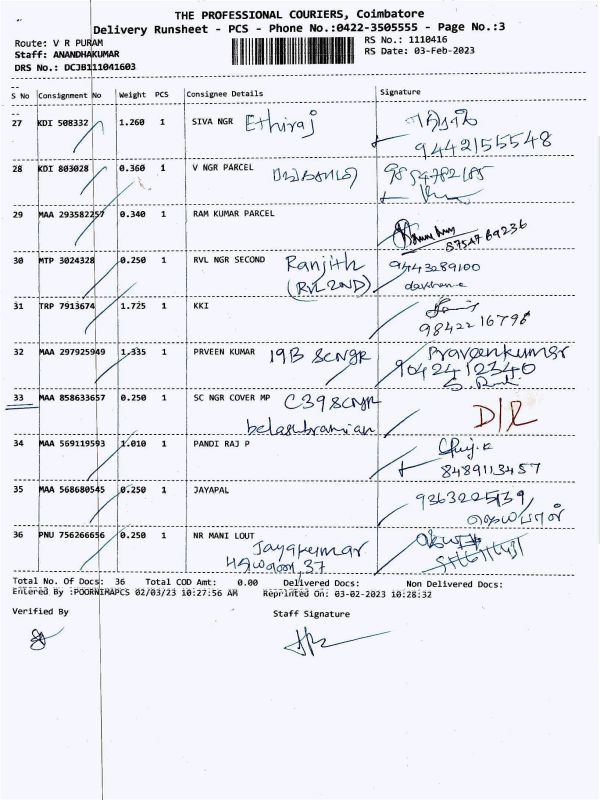 THE PROFESSIONAL COURIERS, Coimbatore
Delivery Runsheet - PCS - Phone No.:0422-3505555 - Page No.:3
Route: V R PURAM RS No.: 1110416
Staff: ANANDHAKUMAR RS Date: 03-Feb-2023
DRS No.: DCJB111041603
S No Consignment No Weight PCS Consignee Details Signature
27 KDI 508332 1.260 1 SIVA NGR Ethiraj
9442155548
28 KDI 803028 0.360 1 V NGR PARCEL
29 MAA 293582257 0.340 1 RAM KUMAR PARCEL
8754769236
30 MTP 3024328 0.250 1 RVL NGR SECOND Ranjith 9443289100
(RVL 2ND)
31 TRP 7913674 1.725 1 KKI
9842216798
32 MAA 297925949 1.335 1 PRVEEN KUMAR 19B SCNGR Praveenkumar
9042412340
33 MAA 858633657 0.250 1 SC NGR COVER MP C39 SCNGR D/R
34 MAA 569119593 1.010 1 PANDI RAJ P
8489113457
35 MAA 568680545 0.250 1 JAYAPAL
ஜெயபால்
36 PNU 756266656 0.250 1 NR MANI LOUT Jayakumar
37
Total No. Of Docs: 36 Total COD Amt: 0.00 Delivered Docs: Non Delivered Docs:
Entered By :POORNIMAPCS 02/03/23 10:27:56 AM Reprinted On: 03-02-2023 10:28:32
Verified By Staff Signature